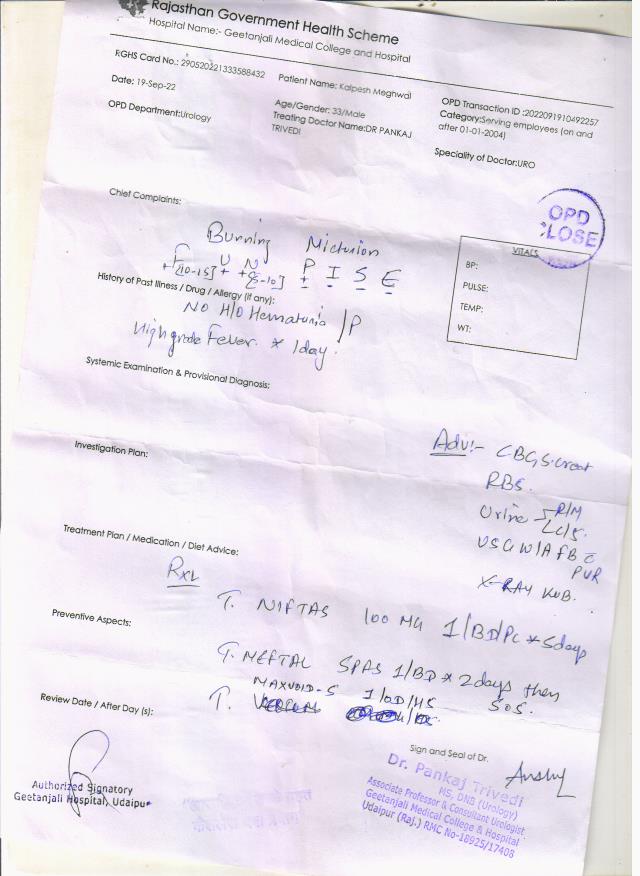 Rajasthan Government Health Scheme
Hospital Name:- Geetanjali Medical College and Hospital
RGHS Card No.: 290520221333588432
Patient Name: Kalpesh Meghwal
OPD Transaction ID :2022091910492257
Date: 19-Sep-22
Age/Gender: 33/Male
Category:Serving employees (on and
after 01-01-2004)
OPD Department:Urology
Treating Doctor Name:DR PANKAJ
TRIVEDI
Speciality of Doctor:URO
OPD
CLOSE
Chief Complaints:
Burning Micturion
F U N P I S E
+[10-15] + +[8-10] + - - -
VITALS
BP:
PULSE:
TEMP:
WT:
History of Past Illness / Drug / Allergy (if any):
NO H/O Hematuria /P
High grade Fever. * 1day.
Systemic Examination & Provisional Diagnosis:
Adv:- CBC, S. Creat
RBS.
Investigation Plan:
Urine R/M
C/S.
USG W/A FB c̄
PVR
X-RAY KUB.
Treatment Plan / Medication / Diet Advice:
Rx
T. NIFTAS 100 MG 1/BD/PC * 5days
Preventive Aspects:
T. MEFTAL SPAS 1/BD * 2days then
SOS.
T. MAXVOID-S 1/OD/HS
Review Date / After Day (s):
Sign and Seal of Dr.
Authorized Signatory
Geetanjali Hospital, Udaipur
Dr. Pankaj Trivedi
MS, DNB (Urology)
Associate Professor & Consultant Urologist
Geetanjali Medical College & Hospital
Udaipur (Raj.) RMC No-18925/17408